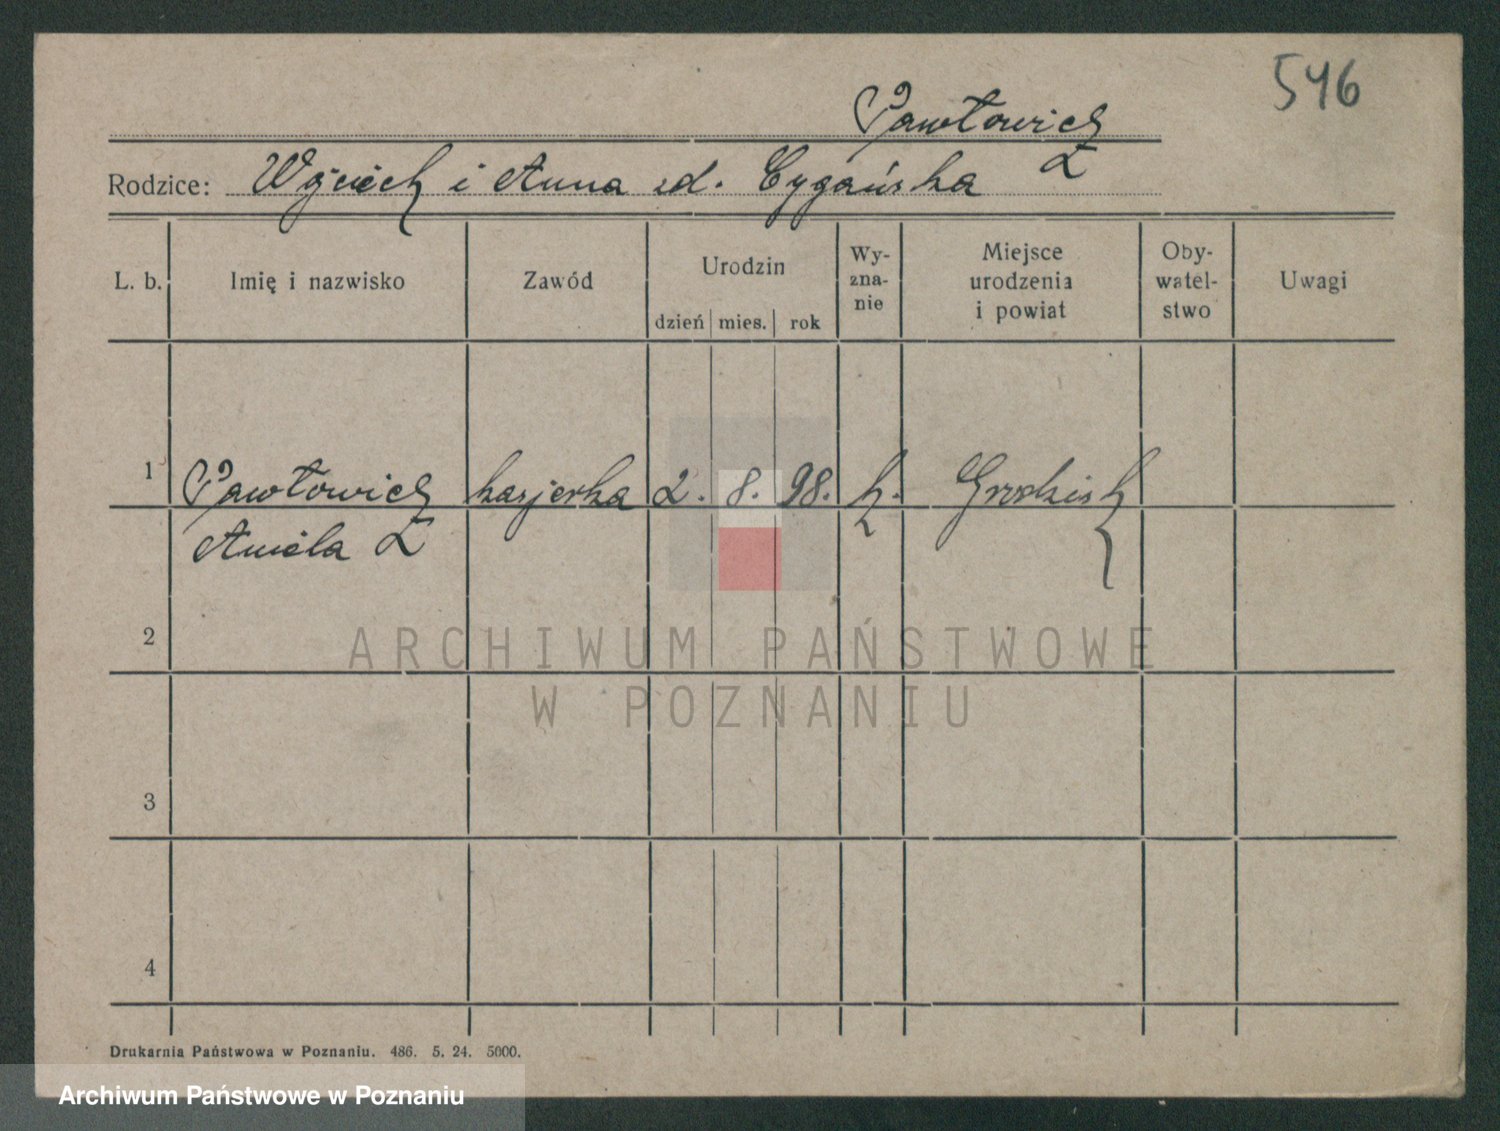 546
Pawłowicz
Rodzice: Wojciech i Anna zd. Cygańska
L. b.
Imię i nazwisko
Zawód
Urodzin
dzień
mies.
rok
Wy-
zna-
nie
Miejsce
urodzenia
i powiat
Oby-
watel-
stwo
Uwagi
1 Pawłowicz kasjerka 2. 8. 98. k. Grodzisk
Aniela
2
3
4
ARCHIWUM PAŃSTWOWE
W POZNANIU
Drukarnia Państwowa w Poznaniu. 486. 5. 24. 5000.
Archiwum Państwowe w Poznaniu